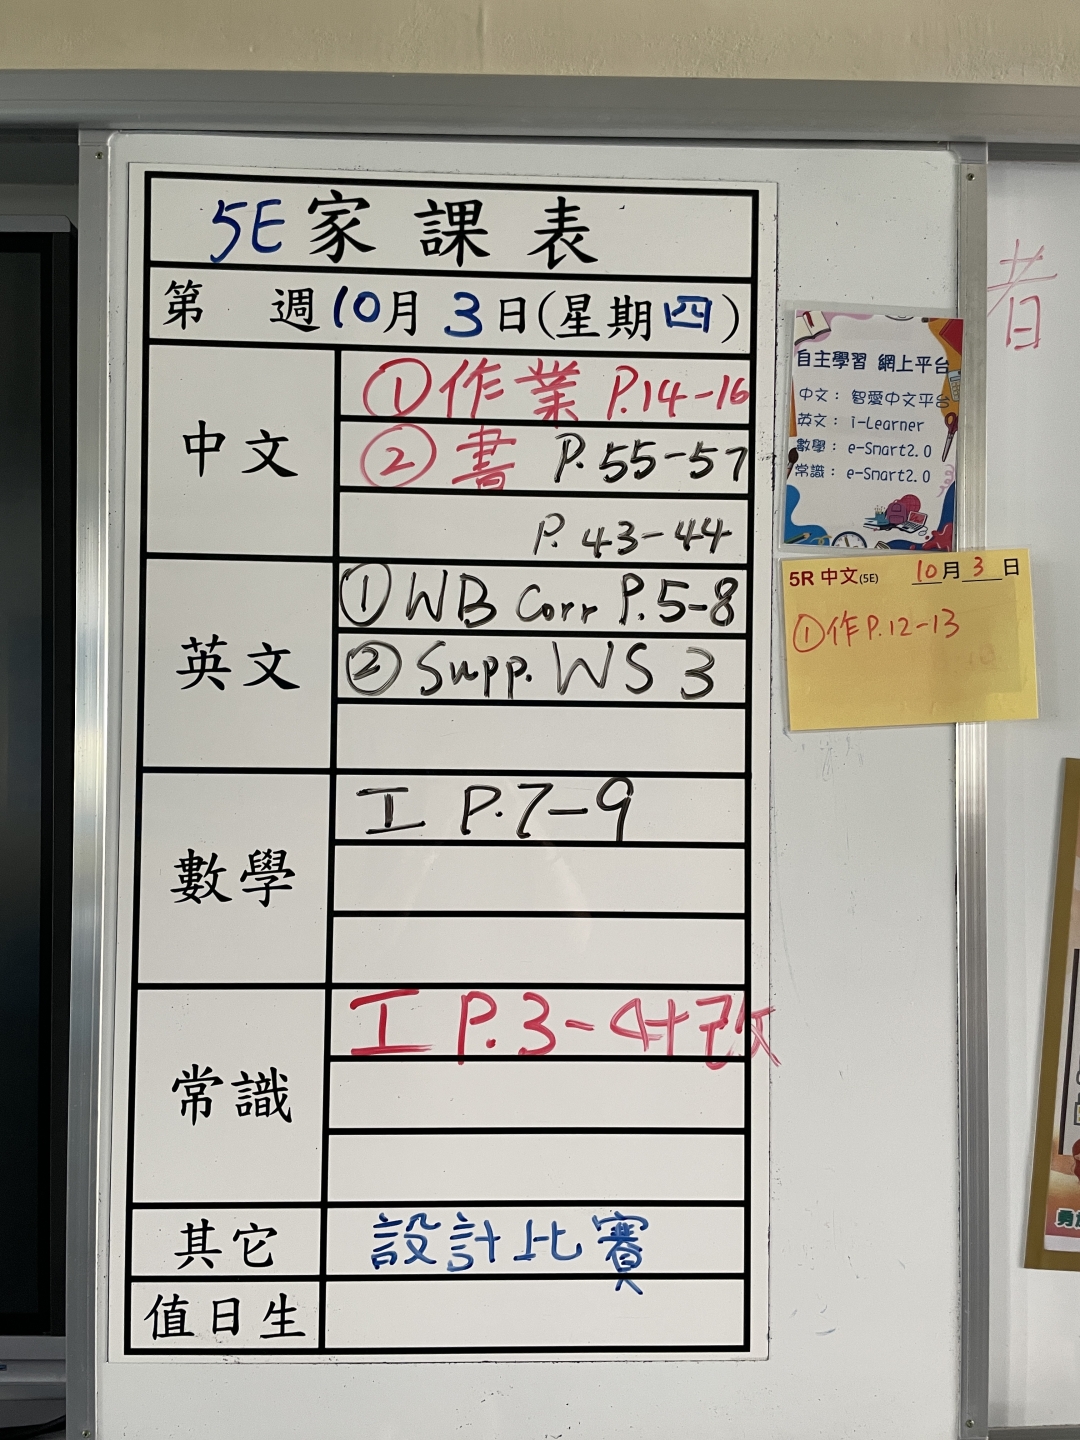 5E家課表
第 週10月3日(星期四)
中文
①作業 P.14-16
②書 P.55-57
P.43-44
英文
①WB Corr P.5-8
②Supp. WS 3
數學
工 P.7-9
常識
工 P.3-4+改
其它
設計比賽
值日生
者
自主學習 網上平台
中文：智愛中文平台
英文：i-Learner
數學：e-Smart2.0
常識：e-Smart2.0
5R 中文(5E) 10月3日
①作P.12-13